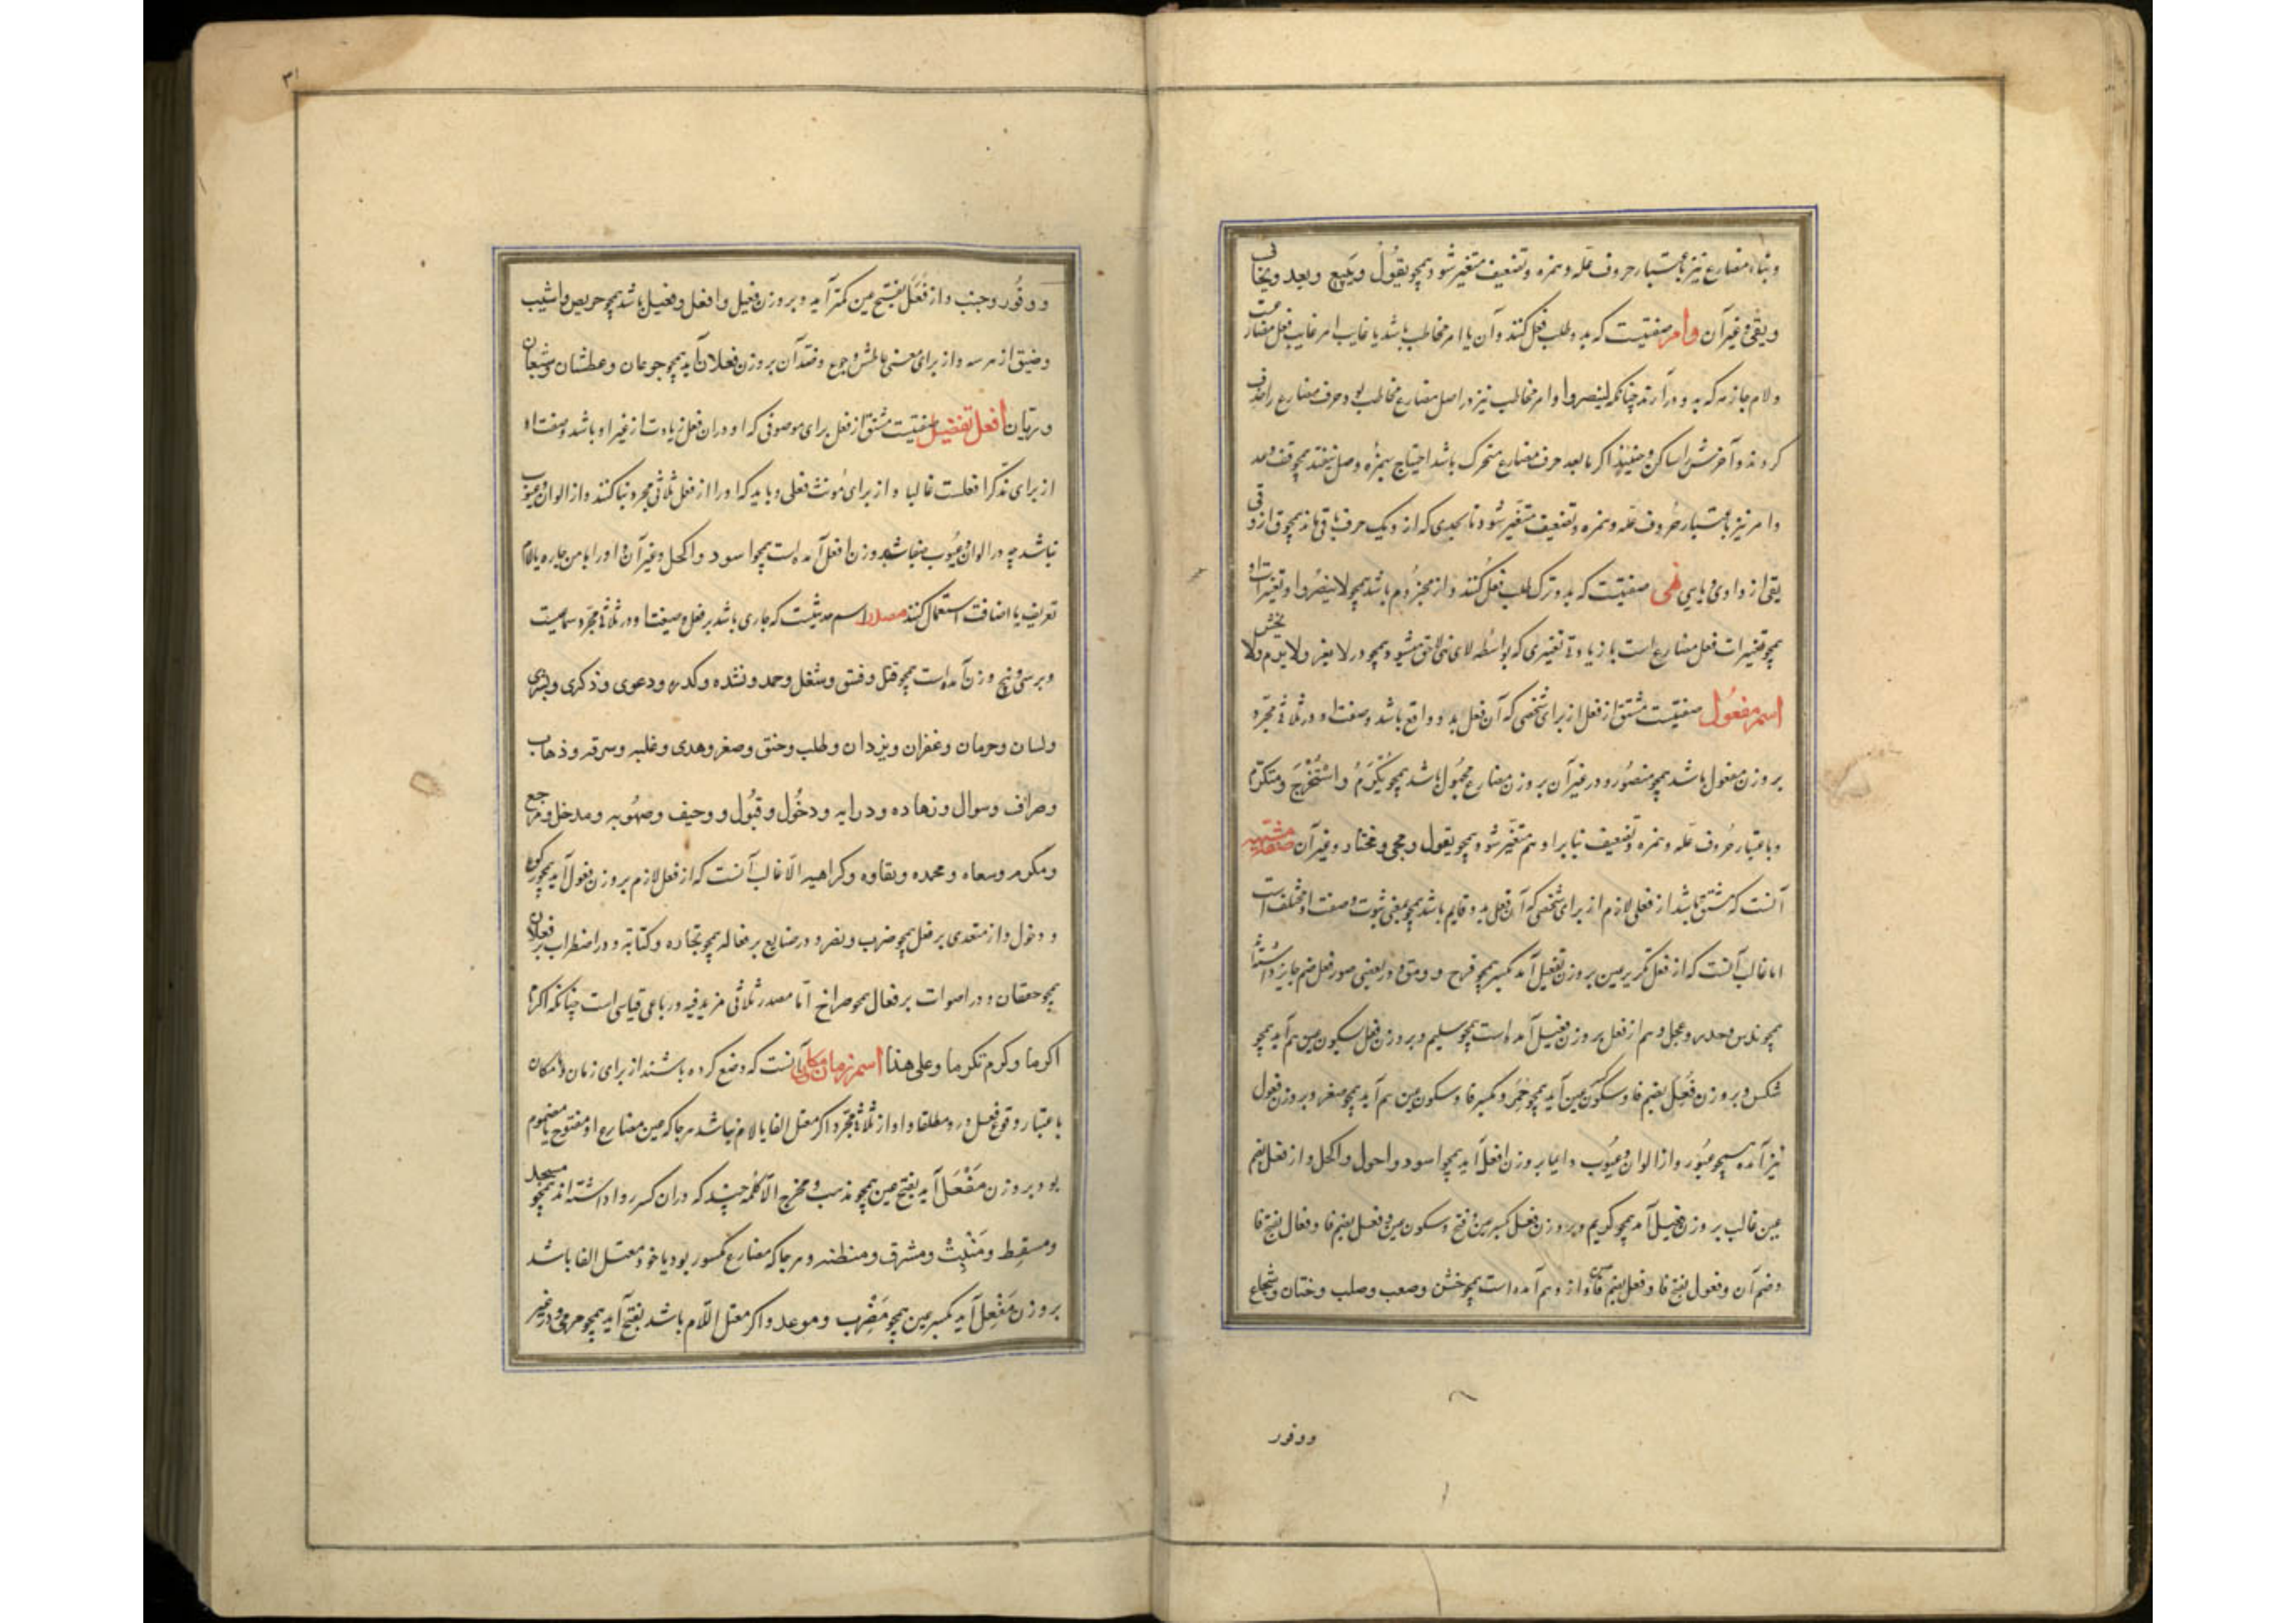 وبناء مضارع نیز باعتبار حروف عله وهمزه وتضعیف متغیر شود همچو یقول ویبیع ویعد ویخاف
ویقی وغیر آن وامر صفتیست که بدو طلب فعل کنند وآن یا امر مخاطب باشد یا غایب امر غایب فعل مضارعست
ولام جازمه که بدو درآرند چنانکه لینصروا وامر مخاطب نیز در اصل مضارع مخاطب بود حرف مضارع را حذف
کردند وآخرش را ساکن وحینئذ اگر مابعد حرف مضارع متحرک باشد احتیاج بهمزه وصل نیفتد همچو قف وعد
وامر نیز باعتبار حروف عله وهمزه وتضعیف متغیر شود تا بحدی که از و یک حرف باقی ماند همچو ق از وقی
یقی از واوی ویایی نهی صفتیست که بدو ترک طلب فعل کنند واز مجزوم باشد همچو لاینصروا وتغیرات او
همچو تغییرات فعل مضارع است با زیادتی تغییری که بواسطه لای نهی لاحق میشود همچو در لا یغز ولا یرم ولا یخش
اسم مفعول صفتیست مشتق از فعل از برای شخصی که آن فعل بدو واقع باشد وصفت او در ثلاثی مجرد
بر وزن مفعول باشد همچو منصور ودر غیر آن بر وزن مضارع مجهول باشد همچو یکرم واستخرج ومتکرم
وباعتبار حروف عله وهمزه وتضعیف بنابر او هم متغیر شود همچو یقول ومجی ومختار وغیر آن صفة مشبهه
آنست که مشتق باشد از فعلی لازم از برای شخصی که آن فعل بدو قایم باشد همچو بمعنی ثبوت وصفت او مختلف است
اما غالب آنست که از فعل بکسر عین بر وزن فعیل آمد بکسر همچو فرح ودر بعضی صور فعل ضم جایز داشته‌اند
همچو ندس وحدس وعجل وهم از فعل بر وزن فعیل آمده است همچو سلیم وبر وزن فعل بسکون عین هم آید همچو
شکس وبر وزن فعل بضم فا وسکون عین آید همچو حر وبکسر فا وسکون عین هم آید همچو صفر وبر وزن فعول
نیز آمده همچو غیور واز الوان وعیوب دایما بر وزن افعل آید همچو اسود واحول واکحل واز فعل بضم
عین غالب بر وزن فعیل آمد همچو کریم وبر وزن فعل بکسر عین وفتح وسکون عین وفعل بضم فا وفعال بفتح فا
وضم آن وفعول بفتح فا وفعل بضم فا واز وهم آمده است همچو خشن وصعب وصلب وجبان وشجاع
ووقور
ووقور وجنب واز فعل بفتح عین کمتر آید وبر وزن فعیل وافعل وفیعل باشد همچو حریص واشیب
وضیق از هر سه واز برای معنی عطش وجوع وضد آن بر وزن فعلان آید همچو جوعان وعطشان وشبعان
وریان افعل تفضیل صفتیست مشتق از فعل برای موصوفی که او در آن فعل زیادت از غیر او باشد وصفت او
از برای مذکر افعلست غالبا واز برای مونث فعلی وباید که او را از فعل ثلاثی مجرد بنا کنند واز الوان وعیوب
نباشد چه در الوان وعیوب بر وزن افعل آمده است همچو اسود واکحل وغیر آن او را با من جاره یا لام
تعریف یا اضافت استعمال کنند مصدر اسم حدثیست که جاری باشد بر فعل وصیغت او در ثلاثی مجرد سماعیست
وبر سی وپنج وزن آمده است همچو قتل وفسق وشغل وحمد ونشده وکدره ودعوی وذکری وبشری
ولیان وحرمان وغفران ونزدان وطلب وخنق وصغر وهدی وغلبه وسرقه وذهاب
وصراف وسوال وزهاده ودرایه ودخول وقبول ووجیف وصهوبه ومدخل ومرجع
ومکرم ومسعاه ومحمده وبغایه وکراهیه الا غالب آنست که از فعل لازم بر وزن فعول آید همچو رکوع
ودخول واز متعدی بر فعل همچو ضرب ونصر ودر صنایع بر فعاله همچو تجاره وکتابة ودر اضطراب بر فعلان
همچو خفقان ودر اصوات بر فعال همچو صراخ اما مصدر ثلاثی مزید فیه ورباعی قیاسی است چنانکه اکرام
اکرما وکرم تکرما وعلی هذا اسم زمان مکان آنست که وضع کرده باشند از برای زمان ومکان
باعتبار وقوع فعل درو مطلقا واو از ثلاثی مجرد اگر معتل الفا یا لام نباشد هر جا که عین مضارع او مفتوح یا مضموم
بود بر وزن مفعل آید بفتح عین همچو مذهب ومخرج الا کلمه چند که در آن کسر روا داشته‌اند همچو مسجد
ومسقط ومنبت ومشرق ومنطنه وهر جا که مضارع مکسور بود یا خود معتل الفا باشد
بر وزن مفعل آید بکسر عین همچو مضرب وموعد واگر معتل اللام باشد بفتح آید همچو مرمی ودر غیر